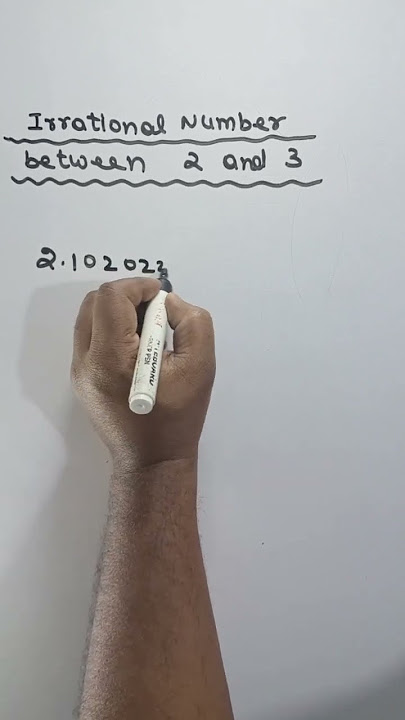 Irrational Number
between 2 and 3
2.102022